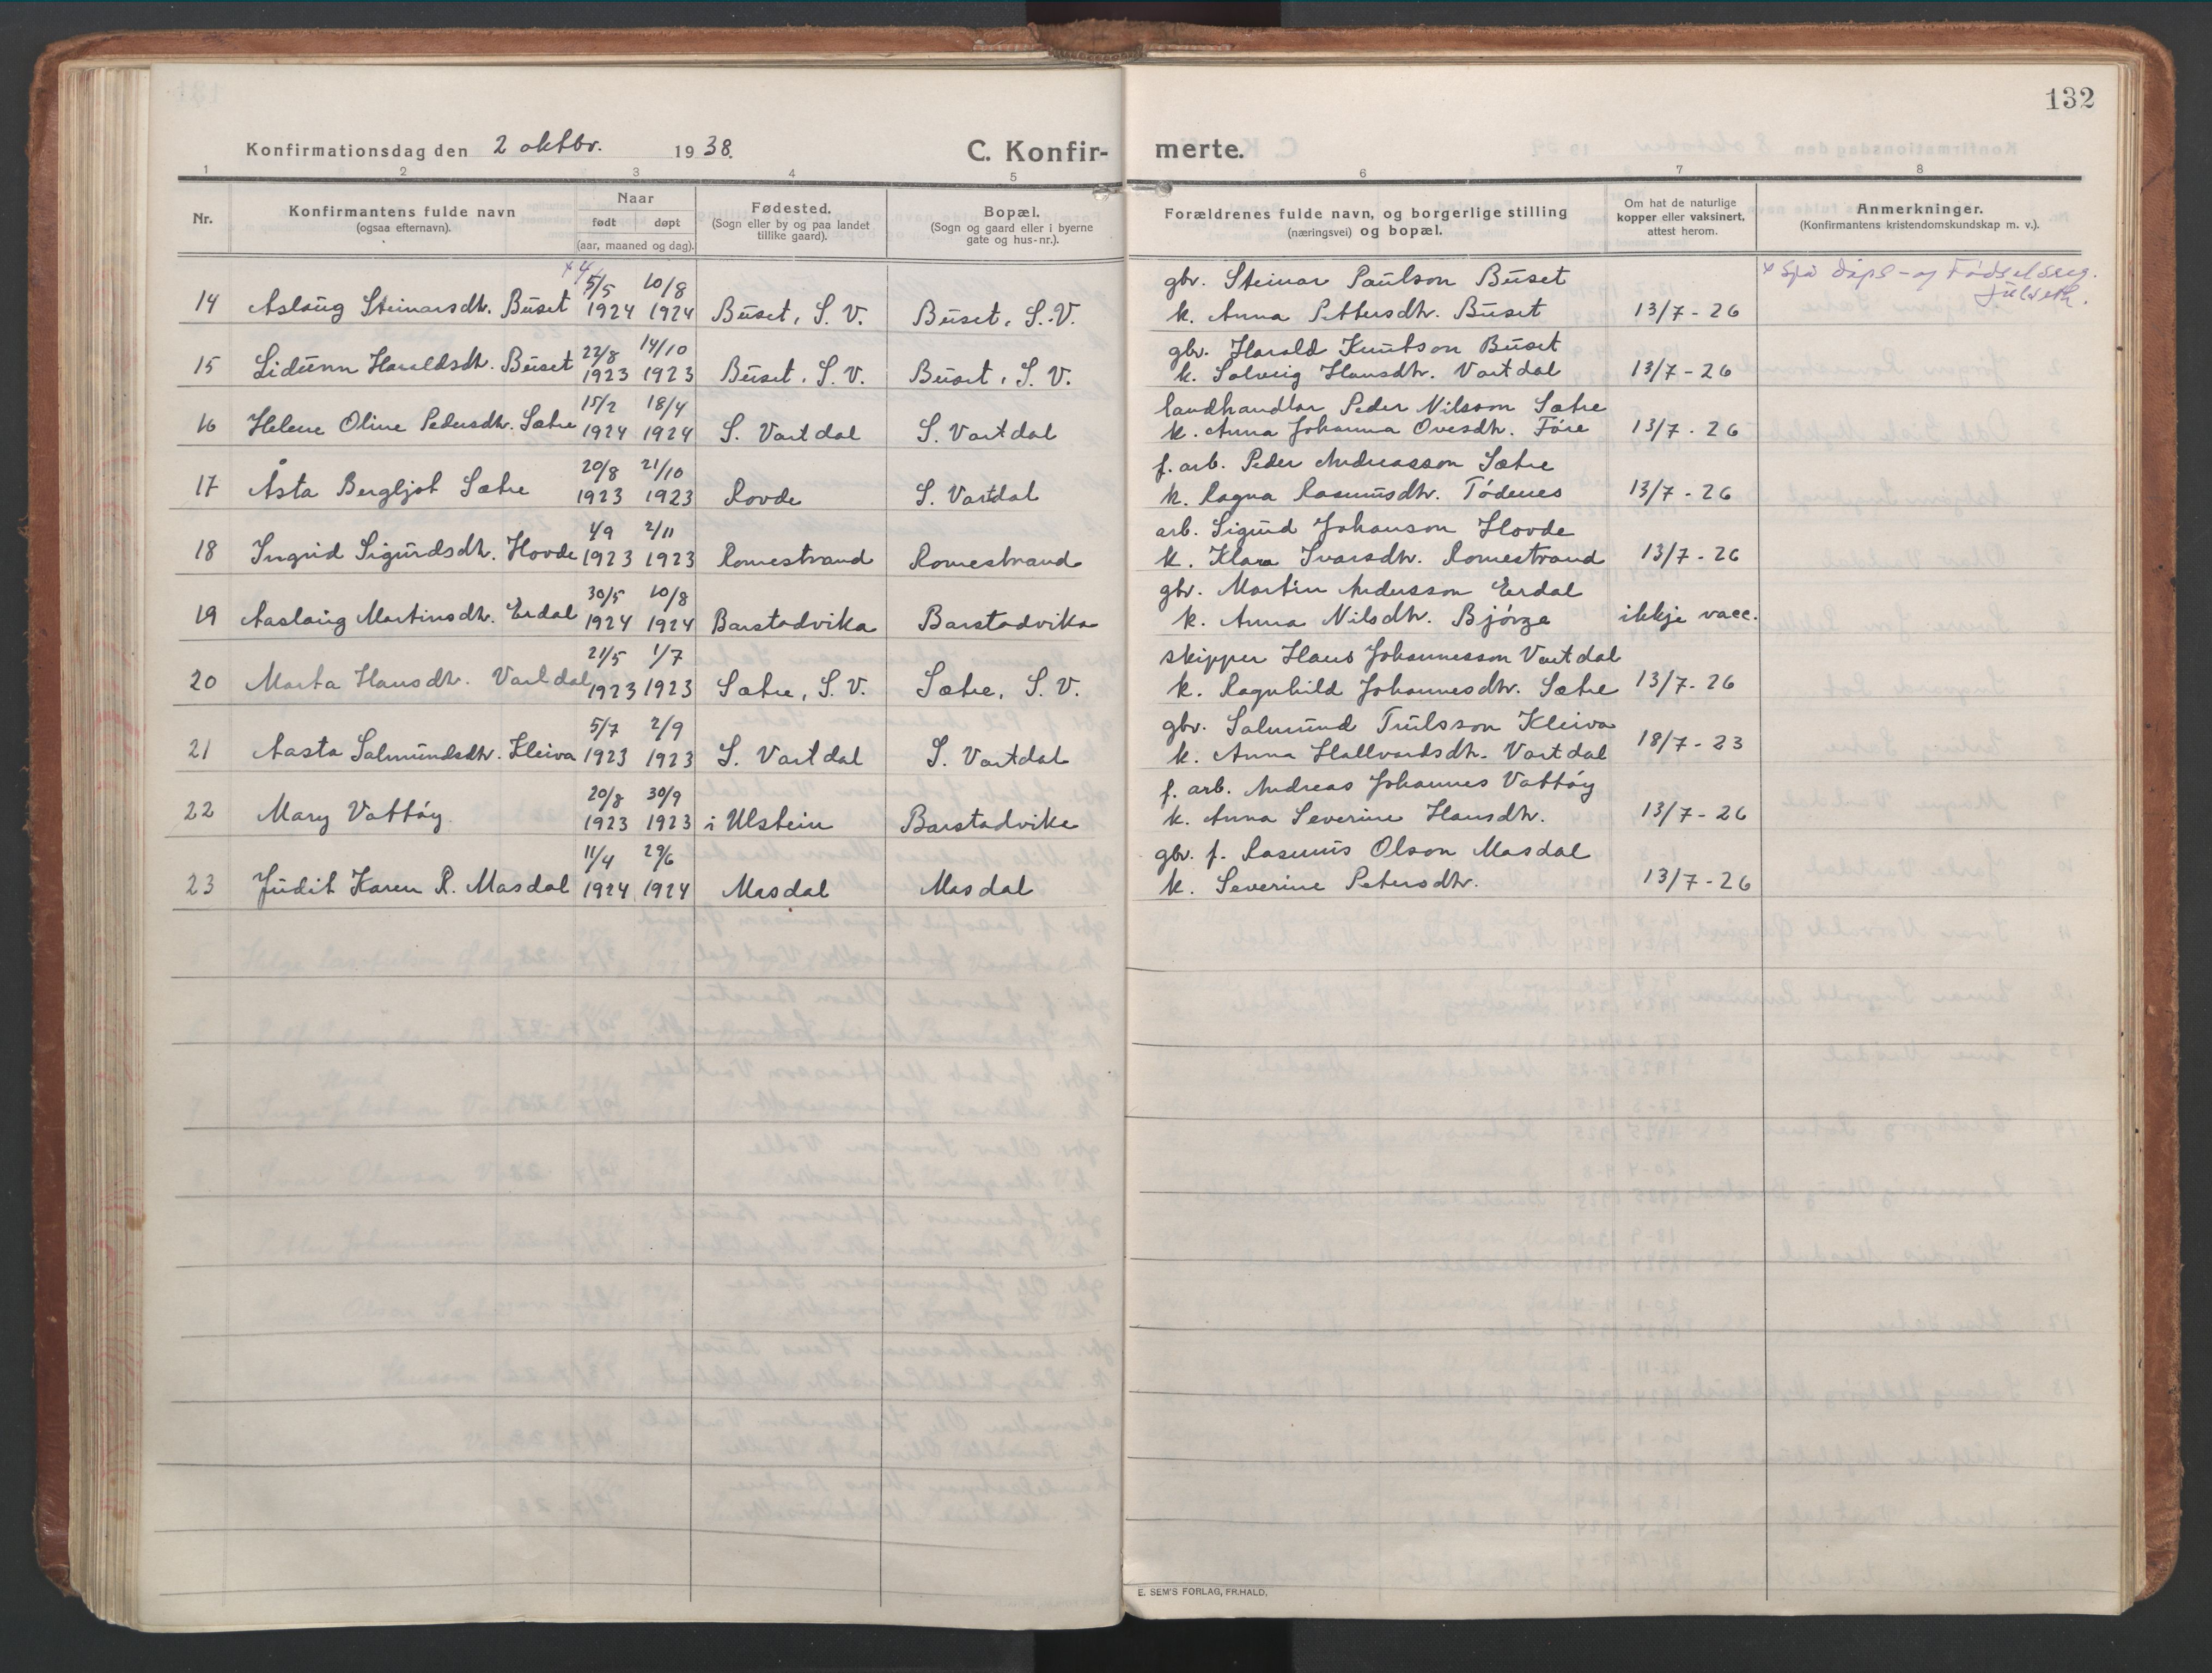 132
Konfirmationsdag den 2 oktbr. 1938. C. Konfirmerte.
1 2 3 4 5 6 7 8
Nr.
Konfirmantens fulde navn
(ogsaa efternavn).
Naar
født døpt
(aar, maaned og dag).
Fødested.
(Sogn eller by og paa landet
tillike gaard).
Bopæl.
(Sogn og gaard eller i byerne
gate og hus-nr.).
Forældrenes fulde navn, og borgerlige stilling
(næringsvei) og bopæl.
Om hat de naturlige
kopper eller vaksinert,
attest herom.
Anmerkninger.
(Konfirmantens kristendomskundskap m. v.).
x 4/ 5/5 10/8 gbr. Steinar Paulson Buset x Sjå dåps- og Fødselsreg.
14 Aslaug Steinarsdtr. Buset 1924 1924 Buset, S. V. Buset, S. V. k. Anna Pettersdtr. Buset 13/7 - 26
22/8 14/10 gbr. Harald Knutson Buset
15 Lidunn Haraldsdtr. Buset 1923 1923 Buset, S. V. Buset, S. V. k. Solveig Hansdtr. Vartdal 13/7 - 26
15/2 18/4 landhandlar Peder Nilsson Sætre
16 Helene Oline Pedersdtr. Sætre 1924 1924 S. Vartdal S. Vartdal k. Anna Johanna Ovesdtr. Føre 13/7 - 26
20/8 21/10 f. arb. Peder Andreasson Sætre
17 Åsta Bergljot Sætre 1923 1923 Rovde S. Vartdal k. Ragna Rasmusdtr. Tødenes 13/7 - 26
4/9 2/11 arb. Sigurd Johanson Hovde
18 Ingrid Sigurdsdtr. Hovde 1923 1923 Romestrand Romestrand k. Klara Ivarsdtr. Romestrand 13/7 - 26
30/5 10/8 gbr. Martin Andersson Erdal
19 Aaslaug Martinsdtr. Erdal 1924 1924 Barstadvika Barstadvika k. Anna Nilsdtr. Bjørge ikkje vacc.
21/5 1/7 skipper Hans Johannesson Vartdal
20 Marta Hansdtr. Vartdal 1923 1923 Sætre, S. V. Sætre, S. V. k. Ragnhild Johannesdtr. Sætre 13/7 - 26
5/7 2/9 gbr. Salmund Trulsson Kleiva
21 Aasta Salmundsdtr. Kleiva 1923 1923 S. Vartdal S. Vartdal k. Anna Hallvardsdtr. Vartdal 18/7 - 23
20/8 30/9 f. arb. Andreas Johannes Vattøy
22 Mary Vattøy. 1923 1923 i Ulstein Barstadvike k. Anna Severine Hansdtr. 13/7 - 26
11/4 29/6 gbr. f. Rasmus Olson Masdal
23 Judit Karen R. Masdal 1924 1924 Masdal Masdal k. Severine Petersdtr. 13/7 - 26
E. SEM'S FORLAG, FR.HALD.